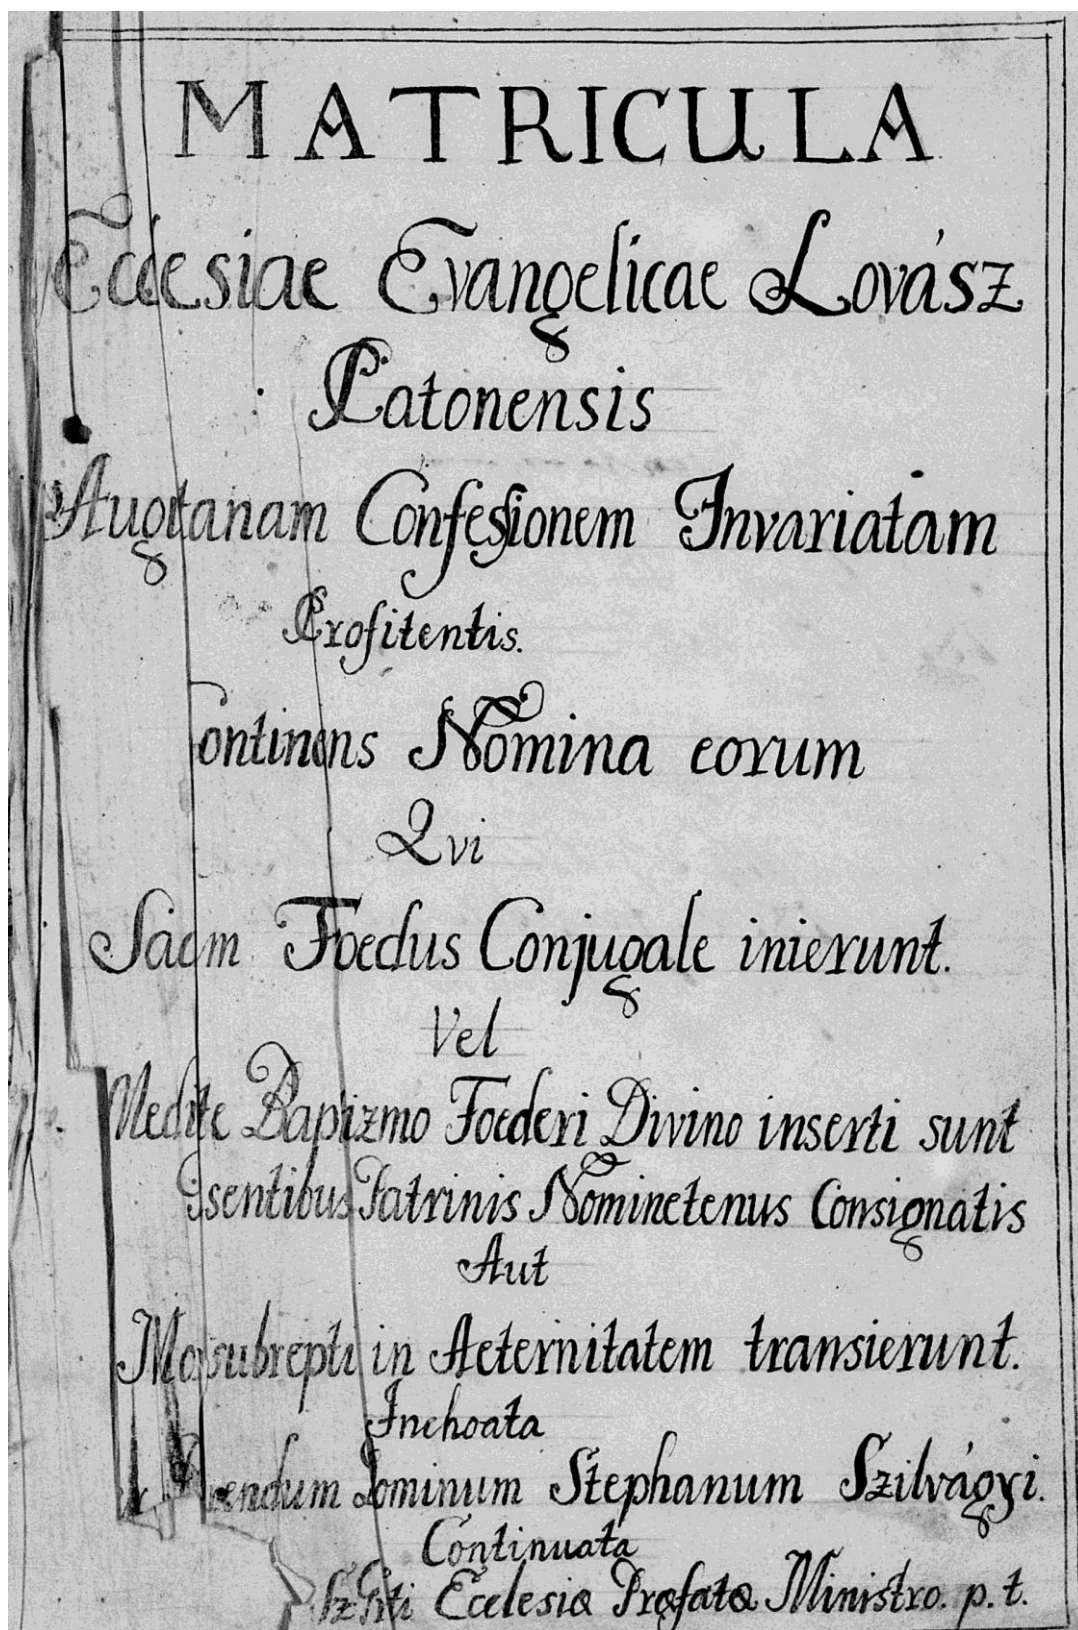 MATRICULA
Ecclesiae Evangelicae Lovász
Patonensis
Augtanam Confessionem Invariatam
Profitentis.
ontinens Nomina eorum
Qvi
Foedus Conjugale inierunt.
Vel
Baptizmo Foederi Divino inserti sunt
sentibus Patrinis Nominetenus Consignatis
Aut
subrepti in Aeternitatem transierunt.
Inchoata
rendum Dominum Stephanum Szilvágyi.
Continuata
Ecclesiæ Præfatæ Ministro. p. t.